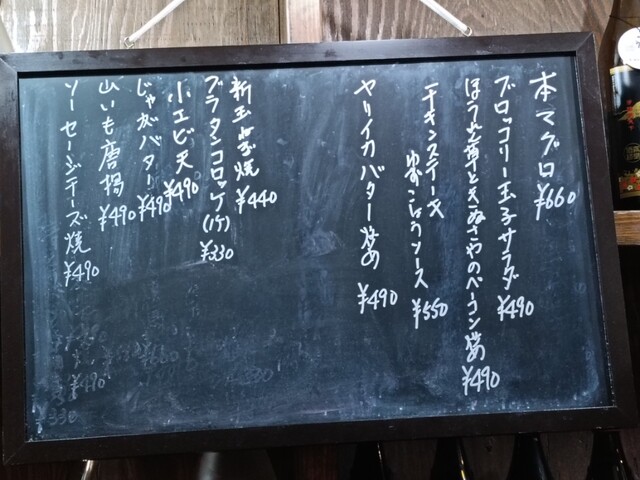 本マグロ ¥660
ブロッコリー玉子サラダ ¥490
ほうれん草ときぬさやのベーコン炒め ¥490
チキンステーキ
ゆずこしょうソース ¥550
ヤリイカバター炒め ¥490
新玉ねぎ焼 ¥440
グラタンコロッケ(1ケ) ¥330
小エビ天 ¥490
じゃがバター ¥490
山いも唐揚 ¥490
ソーセージチーズ焼 ¥490